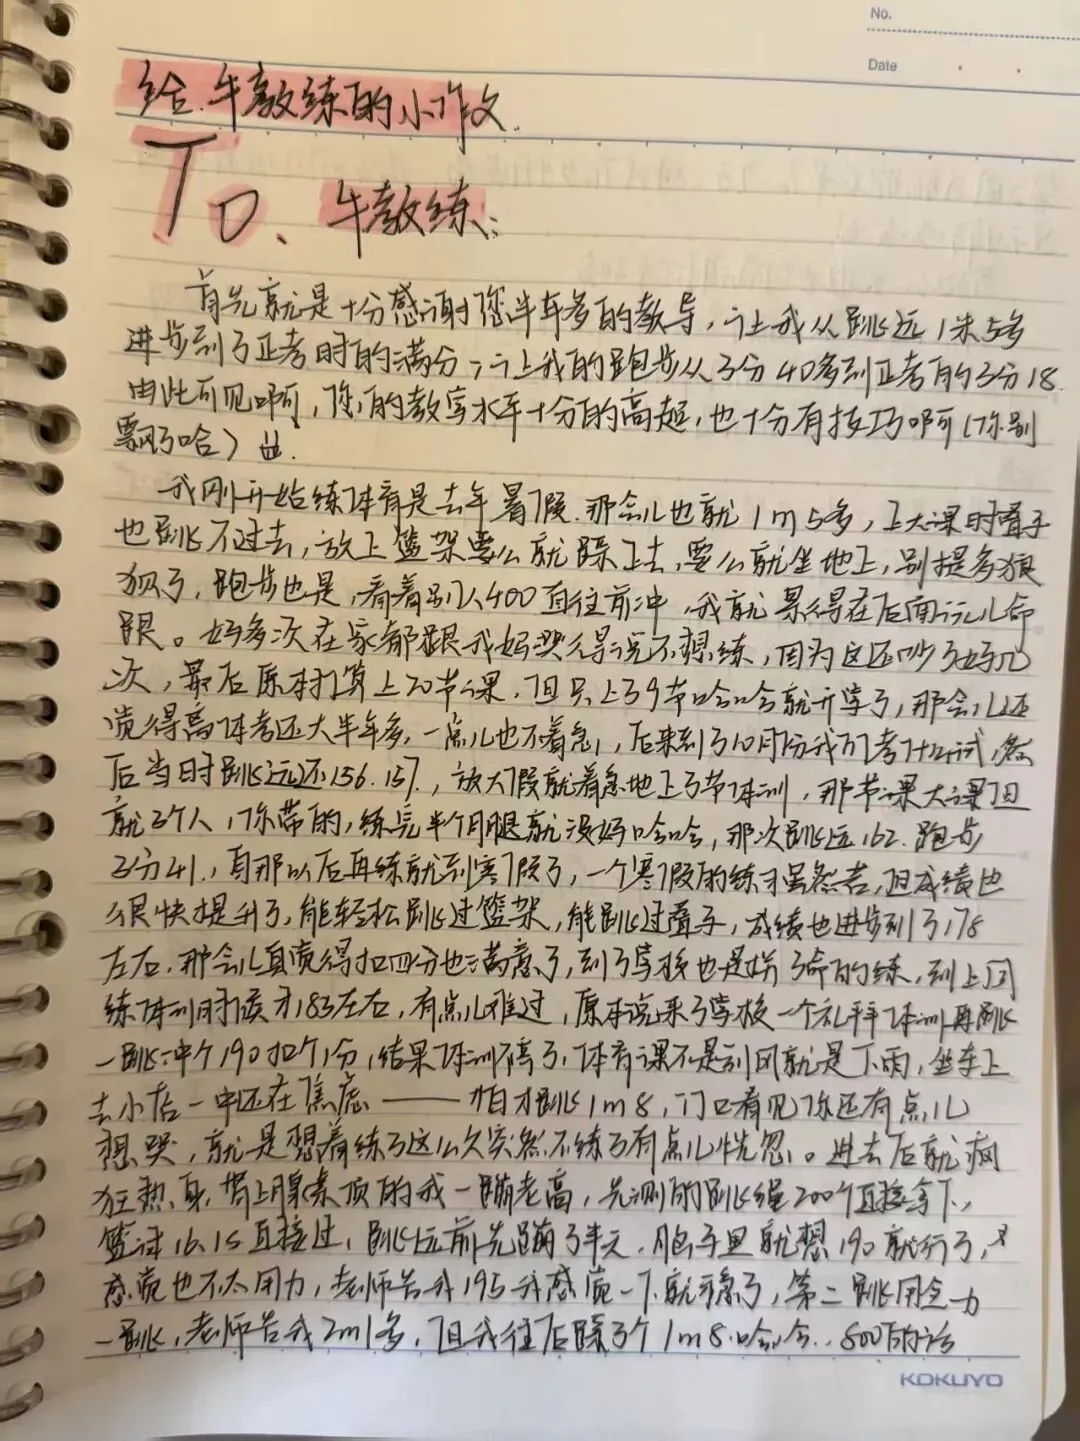 No.
Date
给牛教练的小作文.
To、牛教练:
首先就是十分感谢您半年多的教导，让我从跳远1米5多
进步到了正考时的满分，让我的跑步从3分40多到正考的3分18.
由此可见啊，你的教学水平十分的高超，也十分有技巧啊(你别
飘了哈)
我刚开始练体育是去年暑假.那会儿也就1m5多，上大课时垫子
也跳不过去，放上篮架要么就踩上去，要么就坐地上，别提多狼
狈了，跑步也是，看着别人400直往前冲，我就累得在后面玩儿命
跟。好多次在家都跟我妈哭着说不想练，因为这还吵了好几
次，最后原本打算上20节课，但只上了9节哈哈就开学了，那会儿还
觉得离体考还大半年多，一点儿也不着急，后来到了10月份我们考
后当时跳远还156.157，放大假就着急地上了节体训，那节课大课但
就3个人，你带的，练完半个月腿就没好哈哈，那次跳远162.跑步
3分41.，自那以后再练就到寒假了，一个寒假的练习虽然苦，但成绩也
很快提升了，能轻松跳过篮架，能跳过垫子，成绩也进步到了178
左右，那会儿真觉得扣四分也满意了，到了学校也是拼了命的练，到上回
练体训时候才183左右，有点儿难过，原本说来了学校一个礼拜体训再跳
一跳冲个190扣个1分，结果体训不停了，体育课不是刮风就是下雨，坐车上
去小店一中还在焦虑——怕才跳1m8，门口看见你还有点儿
想哭，就是想着练了这么久突然不练了有点儿恍忽。进去后就疯
狂热身，肾上腺素顶的我一蹦老高，先测的跳绳200个直接拿下，
篮球16.15直接过，跳远前先蹦了半天，脑子里就想190就行了，
感觉也不太用力，老师告我195我感觉一下就稳了，第二跳用全力
一跳，老师告我2m1多，但我往后踩了个1m8哈哈..800的话
KOKUYO